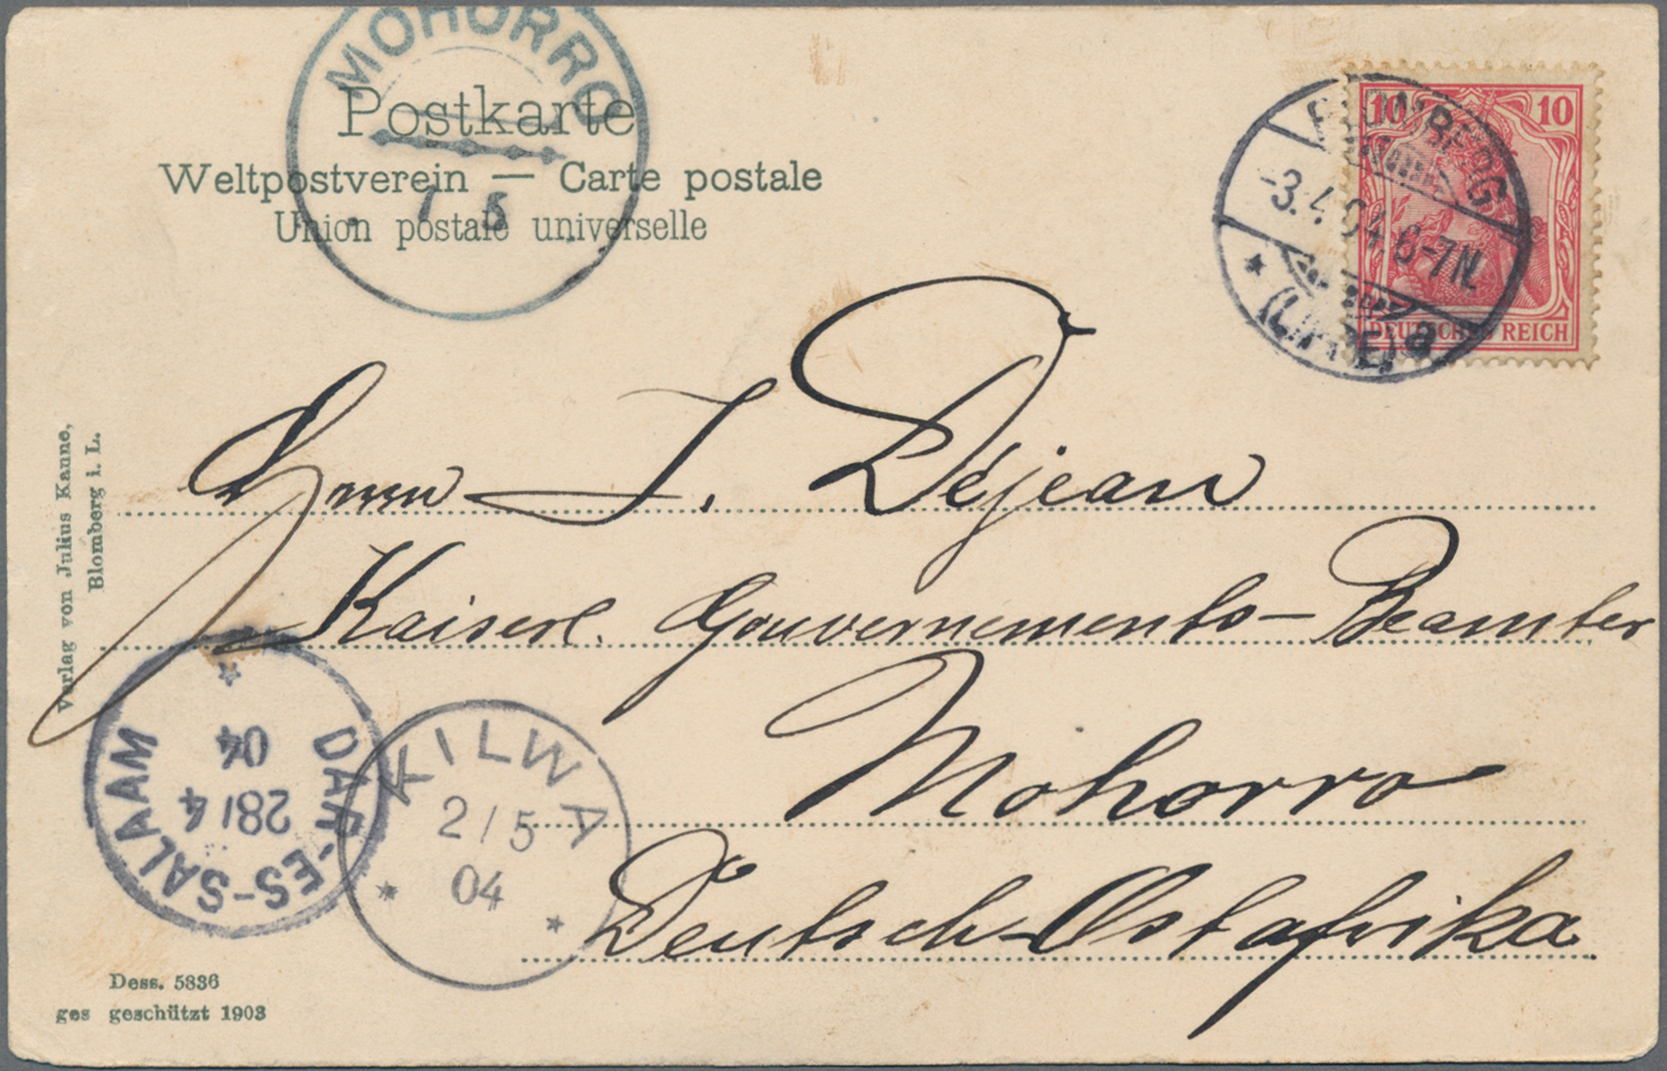 MOHORRO
7 5
Postkarte
Weltpostverein — Carte postale
Union postale universelle
BLOMBERG
-3.4.04.6-7N.
(LIPPE) a
10 10
DEUTSCHES REICH
Herrn J. Déjean
Kaiserl. Gouvernements-Beamter
Mohorro
Deutsch-Ostafrika.
Verlag von Julius Kanne,
Blomberg i. L.
DAR-ES-SALAAM
28/4
04
KILWA
2/5
04
Dess. 5836
ges geschützt 1903